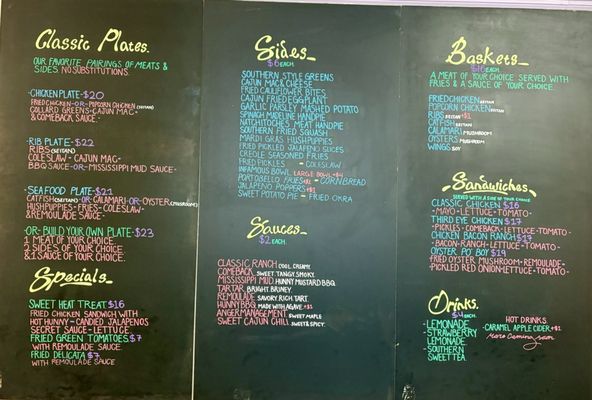 Classic Plates.
OUR FAVORITE PAIRINGS OF MEATS &
SIDES NO SUBSTITUTIONS.
-CHICKEN PLATE-$20
FRIED CHICKEN-OR-POPCORN CHICKEN (SEITAN)
COLLARD GREENS-CAJUN MAC-
& COMEBACK SAUCE-
-RIB PLATE-$22
RIBS (SEITAN)
COLESLAW- CAJUN MAC-
BBQ SAUCE-OR-MISSISSIPPI MUD SAUCE-
-SEAFOOD PLATE-$21
CATFISH (SEITAN)-OR-CALAMARI-OR-OYSTER (MUSHROOM)
HUSHPUPPIES-FRIES-COLESLAW-
& REMOULADE SAUCE-
-OR- BUILD YOUR OWN PLATE-$23
1 MEAT OF YOUR CHOICE
2 SIDES OF YOUR CHOICE
& 1 SAUCE OF YOUR CHOICE.
Specials_
SWEET HEAT TREAT $16
FRIED CHICKEN SANDWICH WITH
HOT HUNNY-CANDIED JALAPENOS
SECRET SAUCE-LETTUCE
FRIED GREEN TOMATOES $7
WITH REMOULADE SAUCE.
FRIED DELICATA $7
WITH REMOULADE SAUCE
Sides_
$6 EACH.
SOUTHERN STYLE GREENS
CAJUN MAC & CHEESE
FRIED CAULIFLOWER BITES
CAJUN FRIED EGGPLANT
GARLIC PARSLEY MASHED POTATO
SPINACH MADELINE HANDPIE
NATCHITOCHES MEAT HANDPIE
SOUTHERN FRIED SQUASH
MARDI GRAS HUSHPUPPIES
FRIED PICKLED JALAPENO SLICES
CREOLE SEASONED FRIES
FRIED PICKLES - COLESLAW
INFAMOUS BOWL LARGE BOWL +$4
PORTOBELLO FRIES +$1 - CORNBREAD
JALAPENO POPPERS +$1
SWEET POTATO PIE - FRIED OKRA
Sauces_
$2 EACH.
CLASSIC RANCH COOL CREAMY
COMEBACK SWEET. TANGY. SMOKY.
MISSISSIPPI MUD HUNNY MUSTARD BBQ.
TARTAR BRIGHT. BRINEY
REMOULADE SAVORY. RICH. TART.
HUNNY BBQ MADE WITH AGAVE +$1
ANGER MANAGEMENT SWEET MAPLE
SWEET CAJUN CHILI SWEET & SPICY.
Baskets_
$16 EACH
A MEAT OF YOUR CHOICE SERVED WITH
FRIES & A SAUCE OF YOUR CHOICE.
FRIED CHICKEN SEITAN
POPCORN CHICKEN SEITAN
RIBS SEITAN +$1
CATFISH SEITAN
CALAMARI MUSHROOM
OYSTERS MUSHROOM
WINGS SOY
Sandwiches_
SERVED WITH A SIDE OF YOUR CHOICE
CLASSIC CHICKEN $16
-MAYO-LETTUCE-TOMATO-
THIRD EYE CHICKEN $17
-PICKLES-COMEBACK-LETTUCE-TOMATO-
CHICKEN BACON RANCH $17
-BACON-RANCH-LETTUCE-TOMATO-
OYSTER PO' BOY $19
FRIED OYSTER MUSHROOM-REMOULADE-
-PICKLED RED ONION-LETTUCE-TOMATO-
Drinks_
$4 EACH.
-LEMONADE
-STRAWBERRY
LEMONADE
-SOUTHERN
SWEET TEA.
HOT DRINKS
-CARAMEL APPLE CIDER +$1
More Coming soon